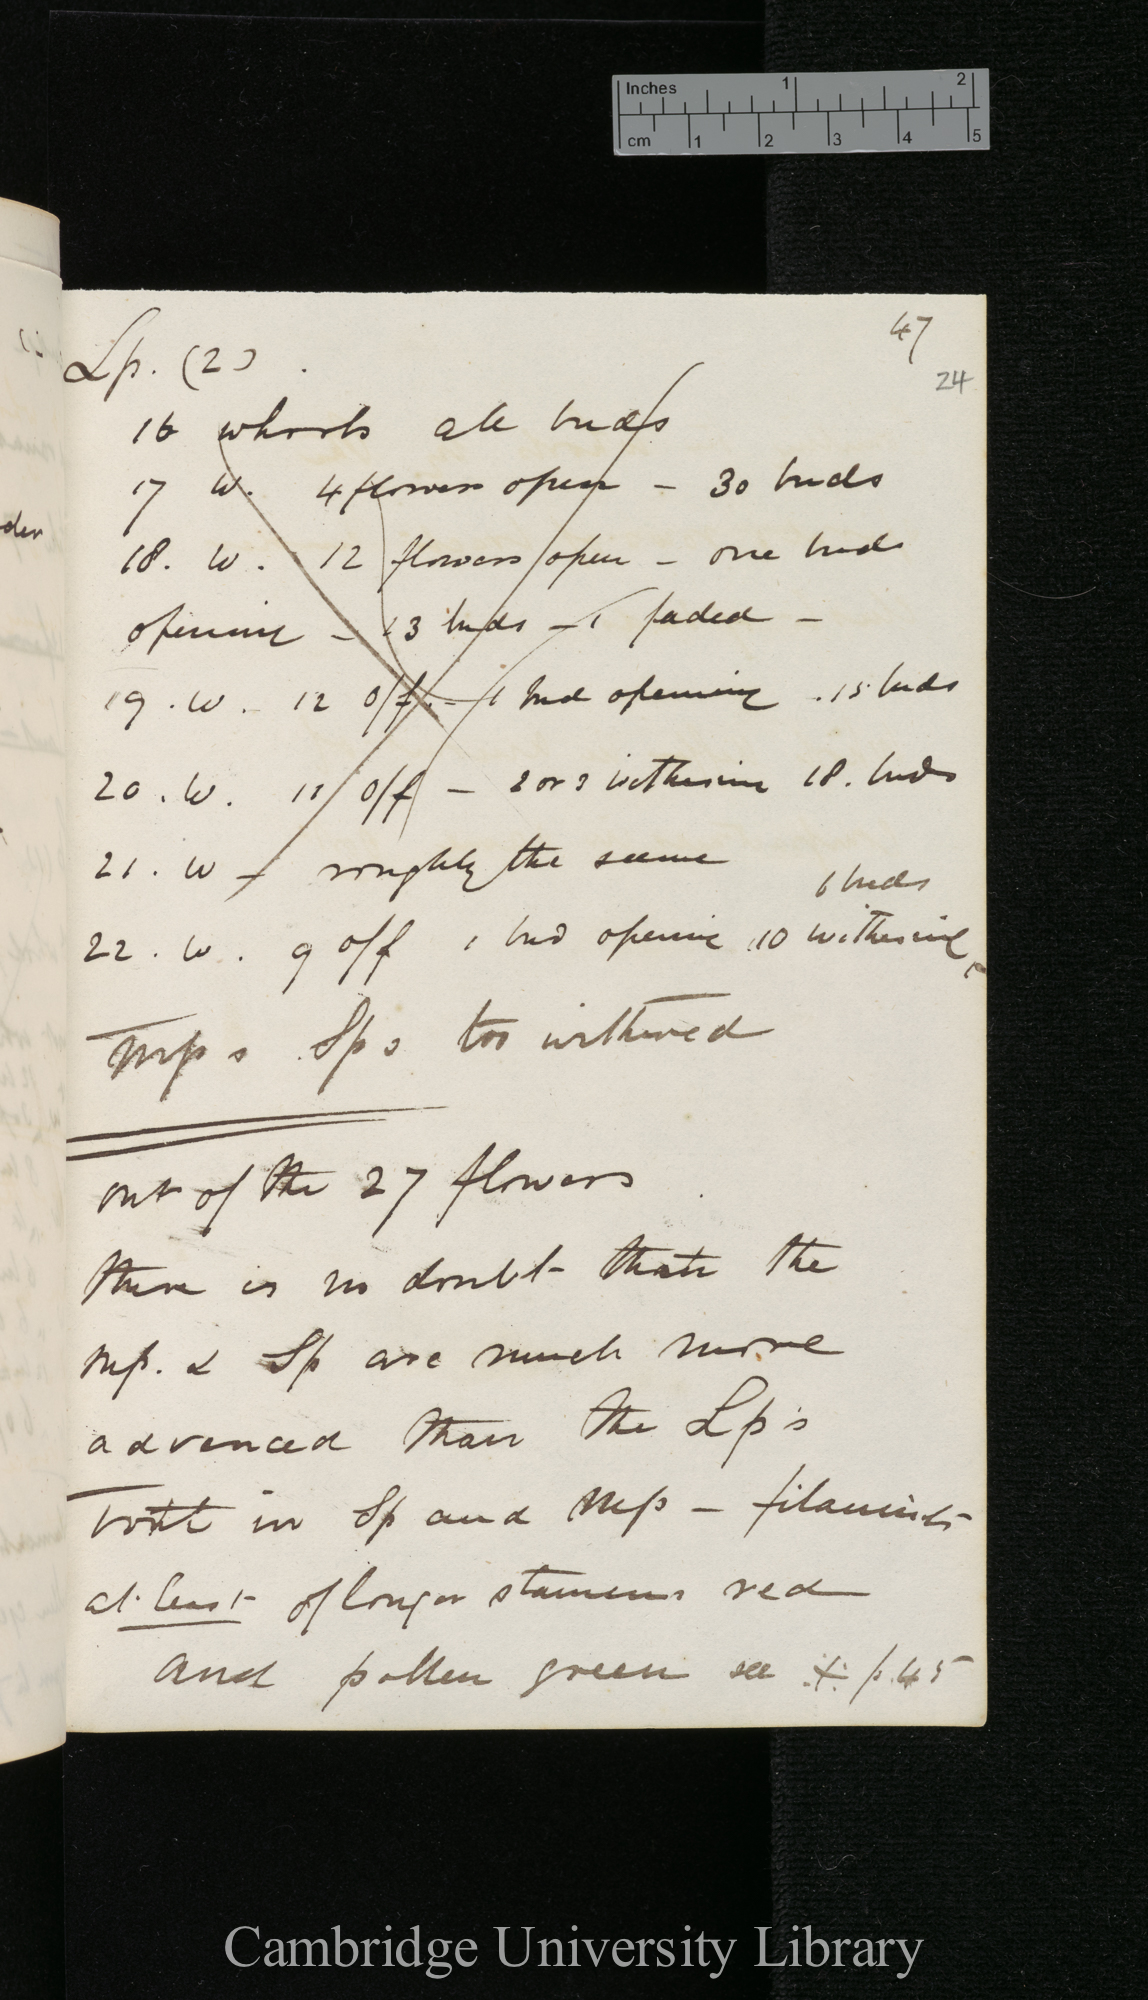 Inches 1 2
cm 1 2 3 4 5
47
24
Lp. (2).
16 whorls all buds
17 W. 4 flowers open - 30 buds
18. W. 12 flowers open - one bud
opening - 13 buds - 1 faded -
19. W. - 12 off. - 1 bud opening. 15 buds
20. W. 11 off - 2 or 3 withering 18. buds
21. W - roughly the same
6 buds
22. W. 9 off 1 bud opening 10 withering
Mps Sps too withered
out of the 27 flowers
there is no doubt that the
Mp. & Sp are much more
advanced than the Lp's
both in Sp and Mp - filaments
at least of longer stamens red
and pollen green see + p. 45
der
Cambridge University Library